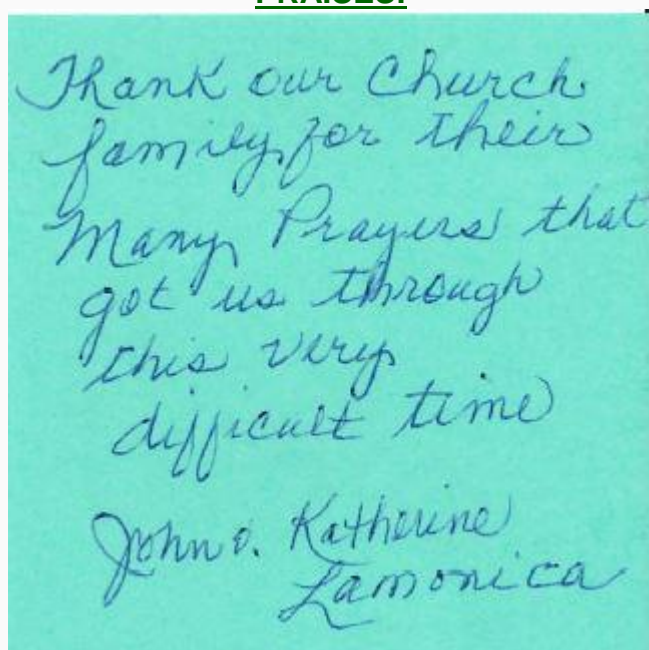 PRAISES:
Thank our Church
family for their
Many Prayers that
got us through
this very
difficult time
John & Katherine
Lamonica